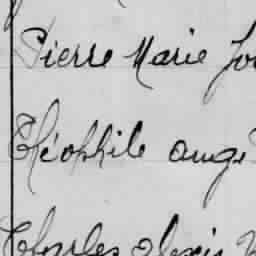 Pierre Marie
Théophile ange
Charles alexis